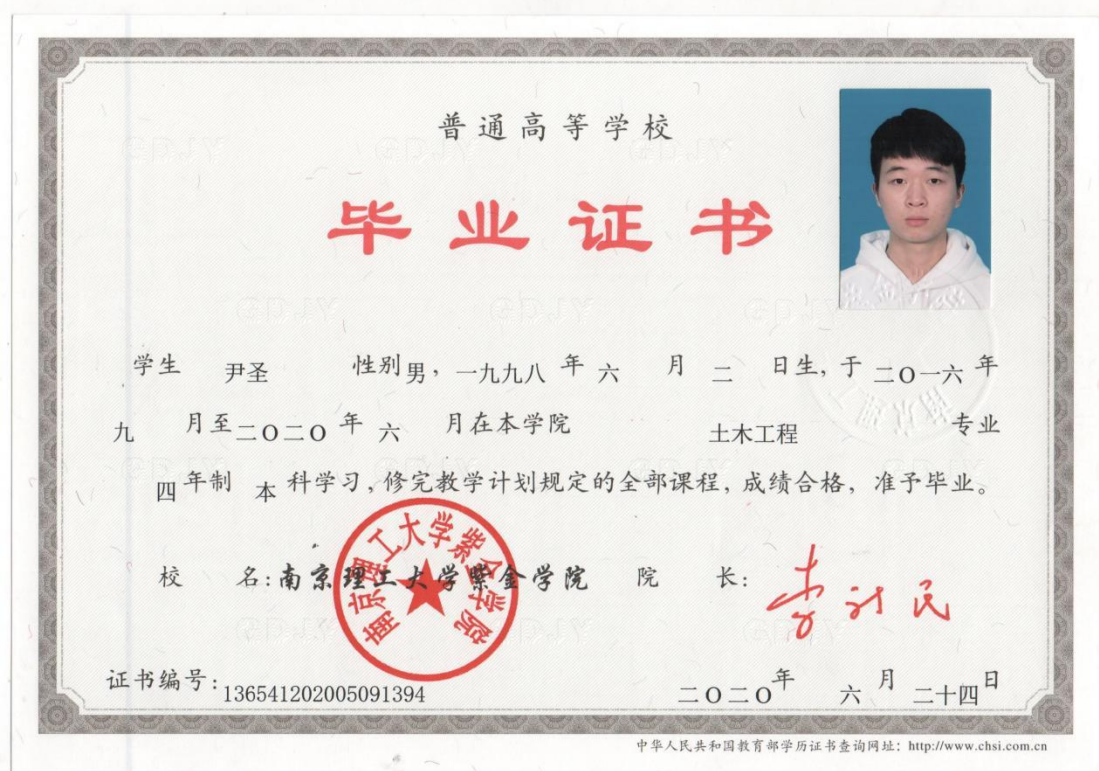 普通高等学校
毕业证书
学生 尹圣 性别 男，一九九八 年 六 月 二 日生，于 二〇一六 年
九 月至 二〇二〇 年 六 月在本学院 土木工程 专业
四 年制 本 科学习，修完教学计划规定的全部课程，成绩合格，准予毕业。
校 名：南京理工大学紫金学院 院 长：
南京理工大学紫金学院
证书编号：136541202005091394 二〇二〇 年 六 月 二十四 日
中华人民共和国教育部学历证书查询网址：http://www.chsi.com.cn